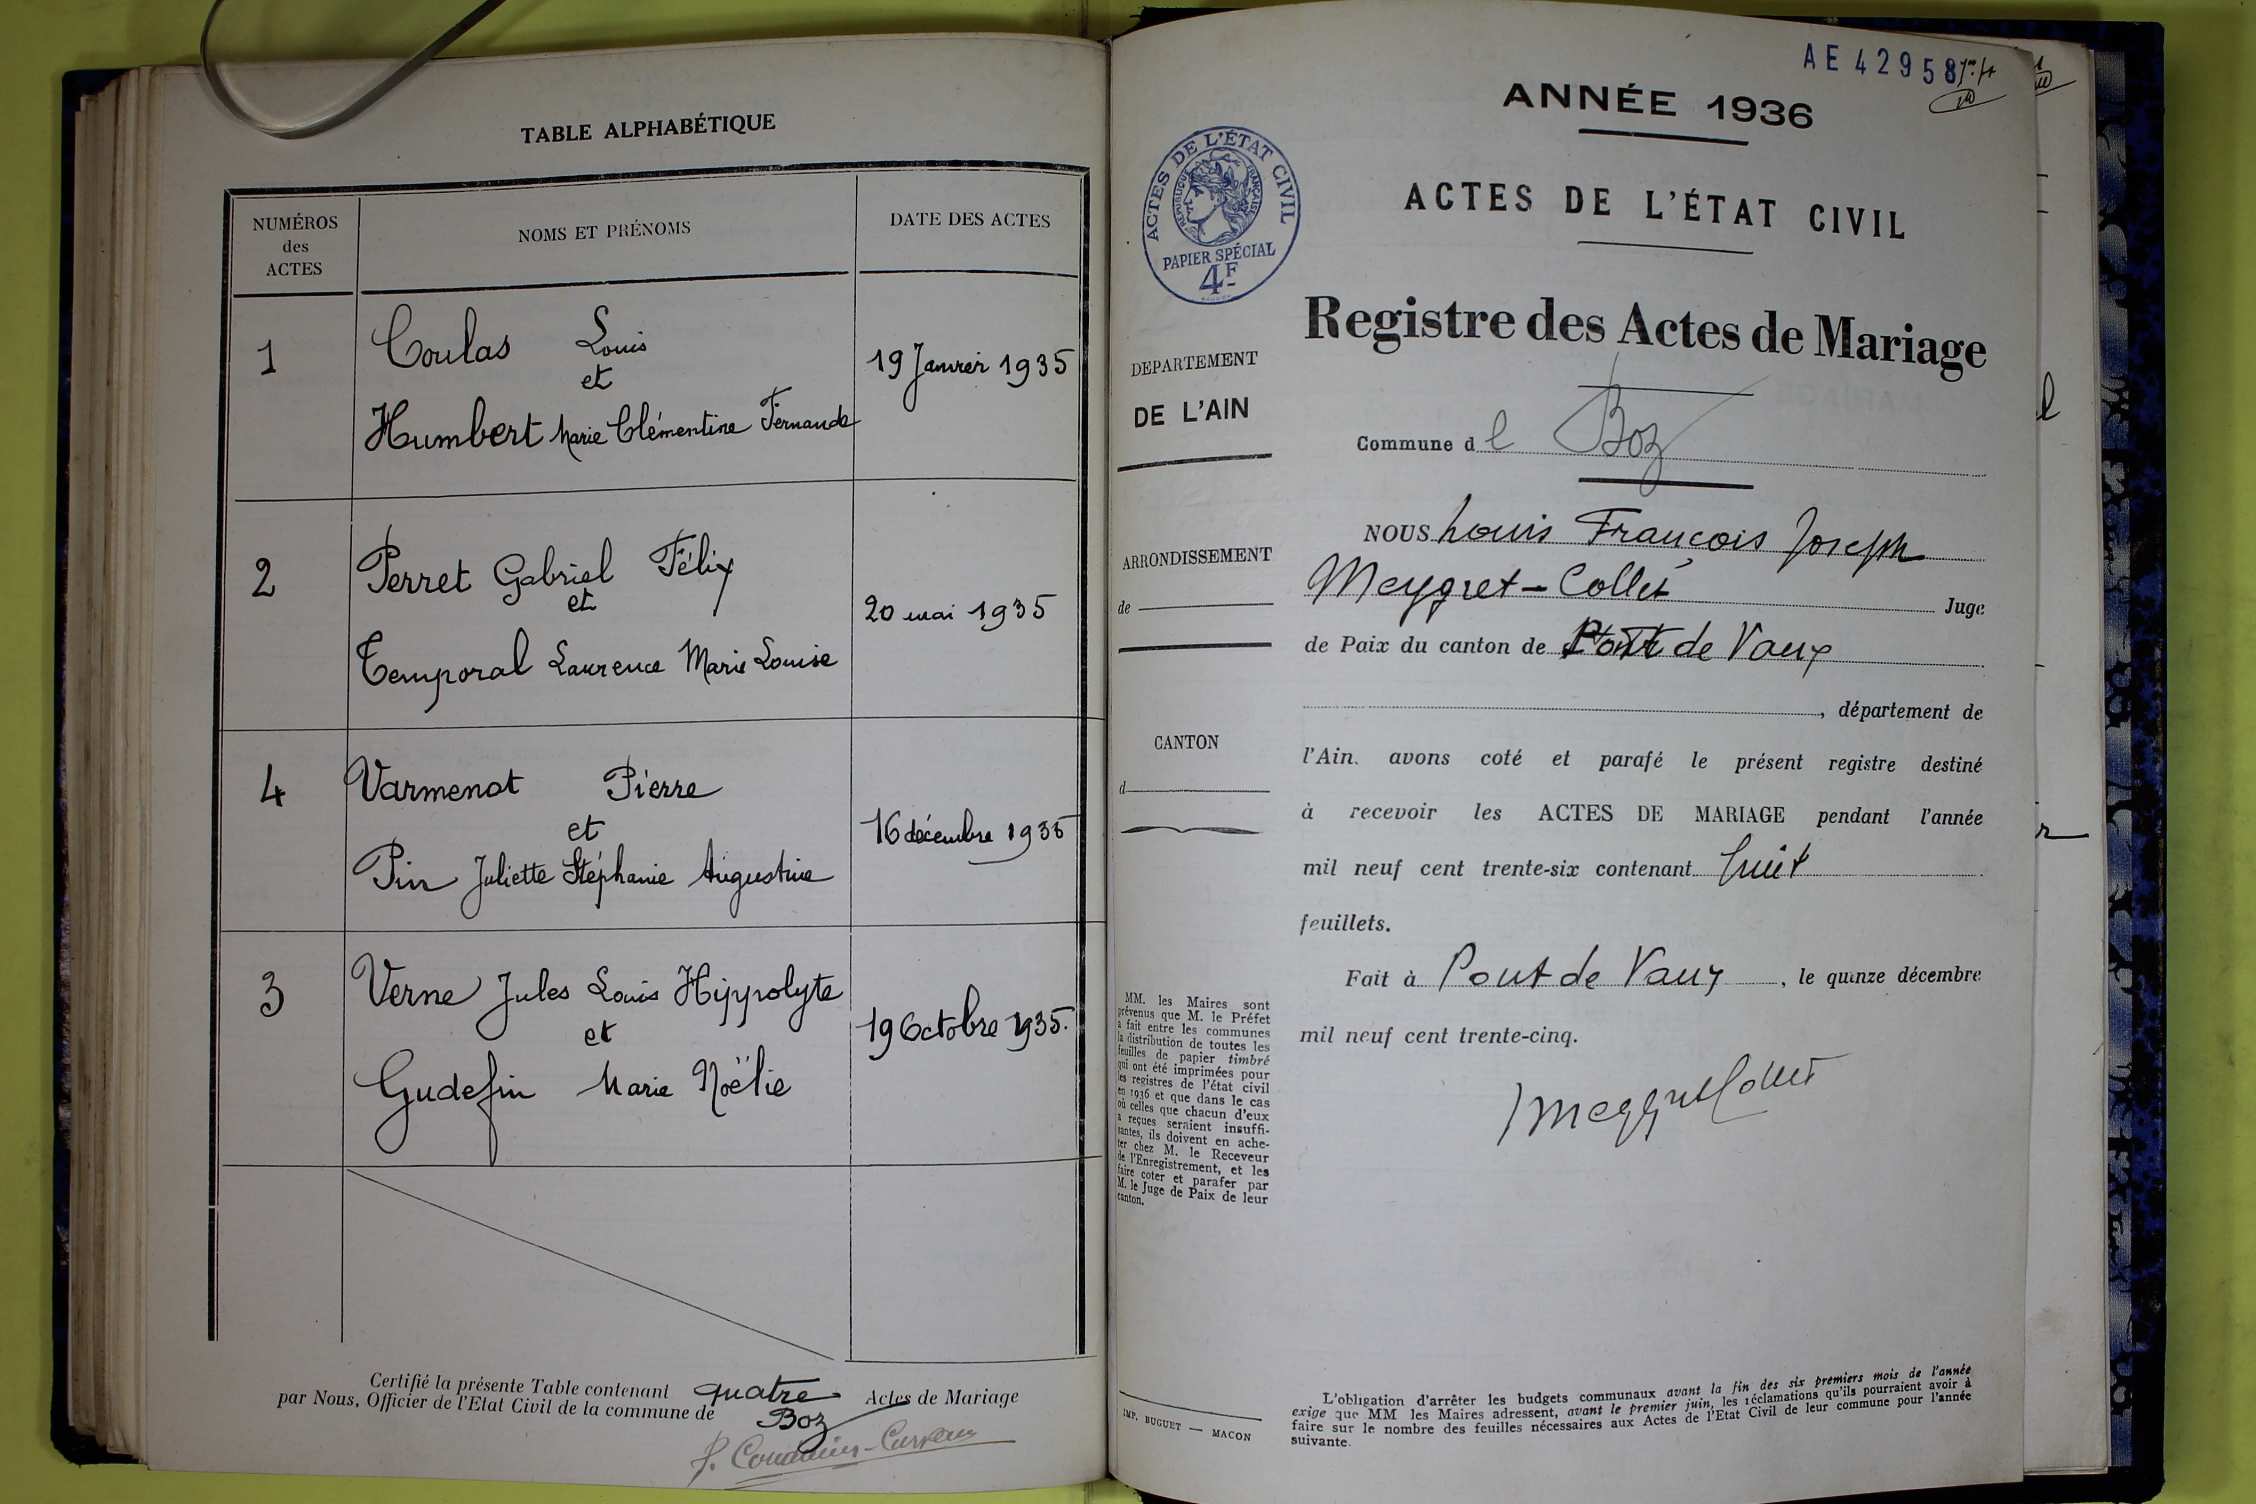 TABLE ALPHABÉTIQUE
NUMÉROS
des
ACTES
NOMS ET PRÉNOMS
DATE DES ACTES
1
Coulas Louis
et
Humbert Marie Clémentine Fernande
19 Janvier 1935
2
Perret Gabriel Félix
et
Temporal Laurence Marie Louise
20 mai 1935
4
Varmenot Pierre
et
Pin Juliette Stéphanie Augustine
16 décembre 1935
3
Verne Jules Louis Hippolyte
et
Gudefin Marie Noëlie
19 Octobre 1935.
Certifié la présente Table contenant quatre Actes de Mariage
par Nous, Officier de l'Etat Civil de la commune de Boz
AE 42958
ANNÉE 1936
ACTES DE L'ÉTAT CIVIL
RÉPUBLIQUE FRANÇAISE
PAPIER SPÉCIAL
4F
ACTES DE L'ÉTAT CIVIL
Registre des Actes de Mariage
DEPARTEMENT
DE L'AIN
Commune de Boz
ARRONDISSEMENT
de
CANTON
d
NOUS Louis François Joseph
Meygret-Collet Juge
de Paix du canton de Pont de Vaux
, département de
l'Ain. avons coté et parafé le présent registre destiné
à recevoir les ACTES DE MARIAGE pendant l'année
mil neuf cent trente-six contenant huit
feuillets.
Fait à Pont de Vaux, le quinze décembre
mil neuf cent trente-cinq.
Meygret Collet
MM. les Maires sont
prévenus que M. le Préfet
a fait entre les communes
la distribution de toutes les
feuilles de papier timbré
qui ont été imprimées pour
les registres de l'état civil
en 1936 et que dans le cas
où celles que chacun d'eux
a reçues seraient insuffi-
santes, ils doivent en ache-
ter chez M. le Receveur
de l'Enregistrement, et les
faire coter et parafer par
M. le Juge de Paix de leur
canton.
IMP. BUGUET — MACON
L'obligation d'arrêter les budgets communaux avant la fin des six premiers mois de l'année
exige que MM les Maires adressent, avant le premier juin, les réclamations qu'ils pourraient avoir à
faire sur le nombre des feuilles nécessaires aux Actes de l'Etat Civil de leur commune pour l'année
suivante.